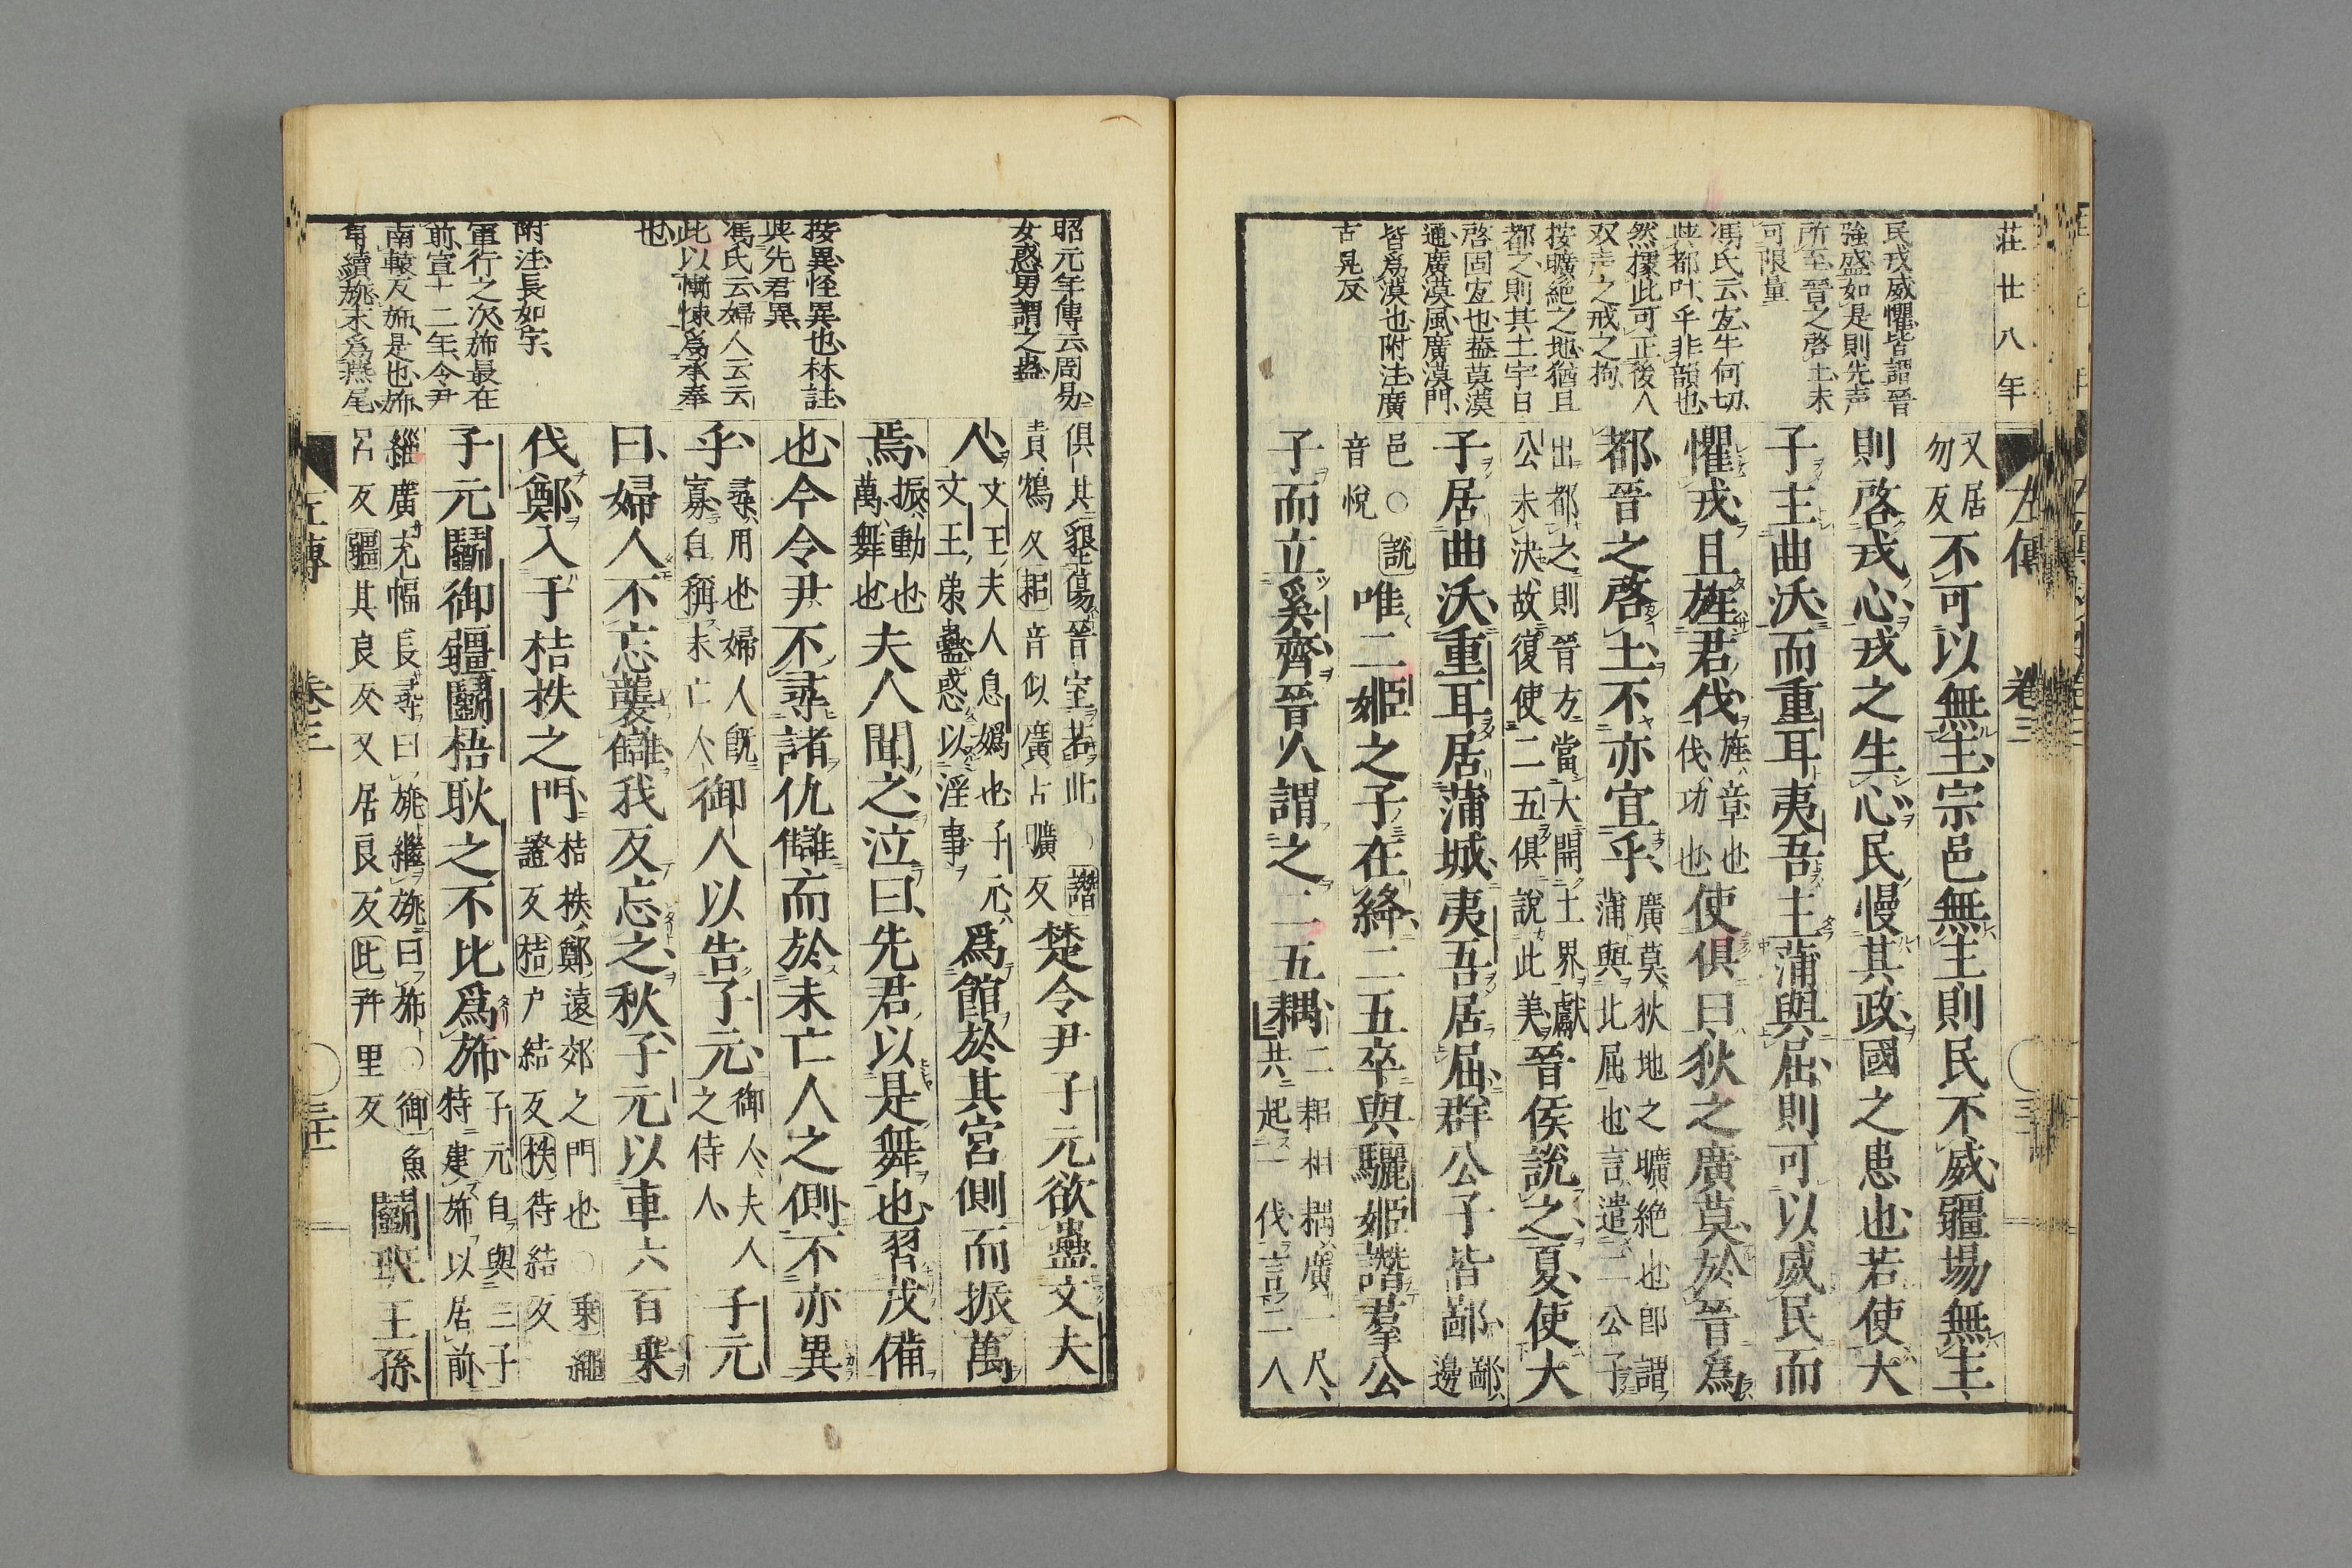 莊廿八年
左傳 卷三
民戎威懼皆謂晉
強盛如是則先声
所至晉之啓土未
可限量
馮氏云宜牛何切
與都叶乎非韻也
然據此可正後人
双声之戒之拘
按曠絶之地猶且
都之則其土宇日
啓固宜也蓋莫漠
通廣漠風廣漠門
皆爲漠也附注廣
古晃反
又居
勿反
不可以無主宗邑無主則民不威疆場無主
則啓戎心戎之生心民慢其政國之患也若使大
子主曲沃而重耳夷吾主蒲與屈則可以威民而
懼戎且旌君伐
旌章也
伐功也
使俱曰狄之廣莫於晉爲
都晉之啓土不亦宜乎
廣莫狄地之曠絶也卽謂
蒲與北屈也言遣二公子
出都之則晉方當大開土界獻
公未決故復使二五俱說此美
晉侯說之夏使大
子居曲沃重耳居蒲城夷吾居屈群公子皆鄙
鄙邊
邑○
音悅
說
唯二姬之子在絳二五卒與驪姬譖羣公
子而立奚齊晉人謂之二五耦
二耜相耦廣一尺
共起一伐言二人
昭元年傳云周易
女惑男謂之蠱
按異怪異也林註
與先君異
馮氏云婦人云云
此以慚悚爲承奉
也
附注長如字
軍行之次斾最在
前宣十二年令尹
南轅反斾是也斾
有續旐末爲燕尾
俱其墾傷晉室若此○譖
責鴆反耜音似廣古曠反
楚令尹子元欲蠱文夫
人
文王夫人息嬀也子元
文王弟蠱惑以淫事
爲館於其宮側而振萬
焉
振動也
萬舞也
夫人聞之泣曰先君以是舞也習戎備
也今令尹不尋諸仇讎而於未亡人之側不亦異
乎
尋用也婦人旣
寡自稱未亡人
御人以告子元
御人夫人
之侍人
子元
曰婦人不忘襲讎我反忘之秋子元以車六百乘
伐鄭入于桔柣之門
桔柣鄭遠郊之門也○乘繩
證反桔戶結反柣待結反
子元鬭御疆鬭梧耿之不比爲斾
子元自與三子
特建斾以居前
緇廣充幅長尋曰旐繼旐曰斾○御魚
呂反疆其良反又居良反比幷里反
鬭班王孫
左傳 卷三